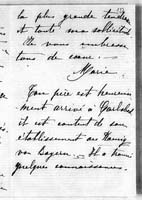 la plus grande tendresse
et toute ma sollicitude
Je vous embrasse
tous de coeur
Marie
Ton père est heureuse
ment arrivé à Carlsbad
il est content de son
établissement au König
von Bayern. Il a trouvé
quelques connaissances.